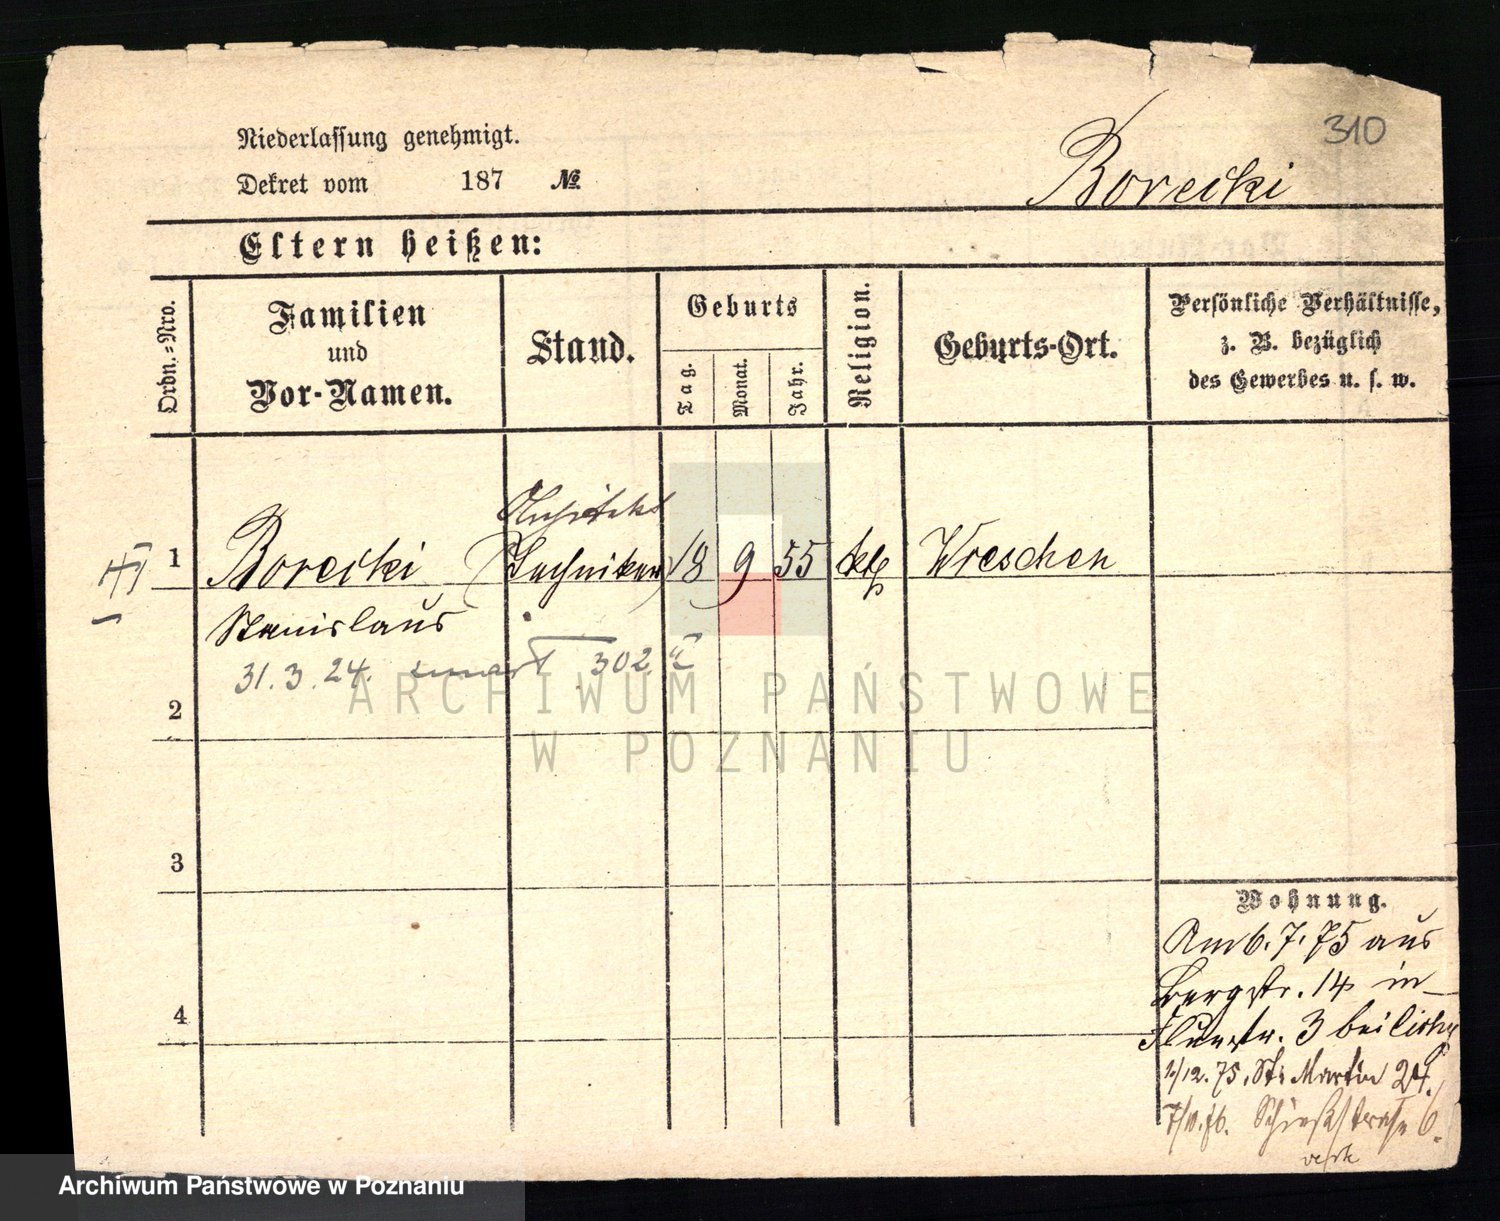 310
Niederlassung genehmigt.
Dekret vom 187 №
Borecki
Eltern heißen:
Ordn.-Nro.
Familien
und
Vor-Namen.
Stand.
Geburts
Tag.
Monat.
Jahr.
Religion.
Geburts-Ort.
Persönliche Verhältnisse,
z. B. bezüglich
des Gewerbes u. s. w.
Architekt
1 Borecki (Techniker) 18 9 55 kth Wreschen
Stanislaus
31.3.24. zmarł 302
2
3
4
Wohnung.
Am 6.7.75 aus
Bergstr. 14 in
3 bei
1/12.75. St. Martin 24.
Schießstraße 6.
ARCHIWUM PAŃSTWOWE
W POZNANIU
Archiwum Państwowe w Poznaniu